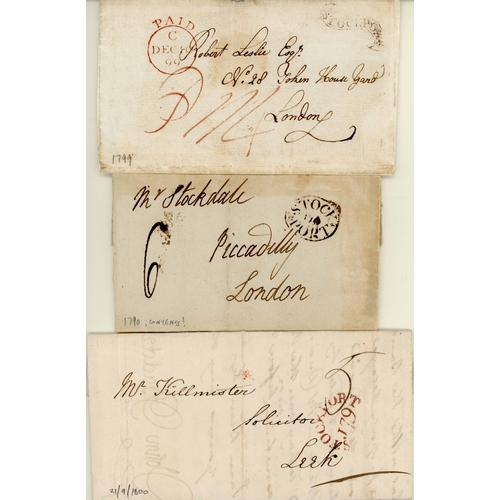 PAID
C
DEC 10
99
STOCKPORT
Robert Leslie Esqr.
No. 28 Token House Yard
London
1799
Mr Stockdale
STOCK
PORT
6
Piccadilly
London
1790 (CONTENTS)
Mr. Killmister
5
STOCKPORT
179
Solicitor
Leek
21/9/1800